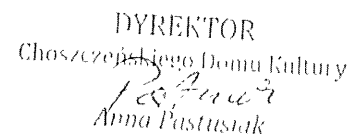 DYREKTOR
Choszczeńskiego Domu Kultury
Anna Pastusiak